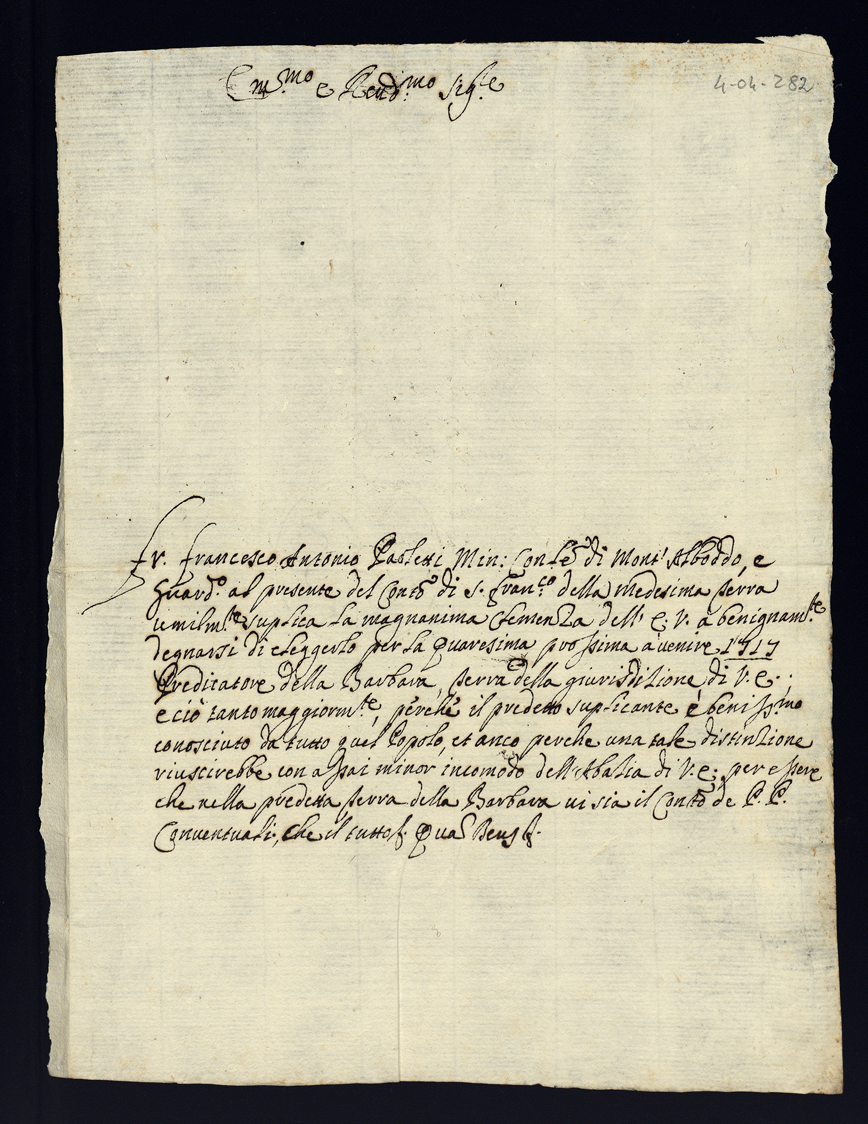 Em.mo e Reud.mo Sig.re
4-04-282
Fr. Francesco Antonio Paoletti Min: Con.le di Mont'Alboddo, e
Guard.o al presente del Conto di S. Fran.co della medesima terra
umilm.te suplica la magnanima clemenza dell' E. V. a benignam.te
degnarsi di eleggerlo per la quaresima prossima a venire 1717
Predicatore della Barbara, terra della giurisdizione di V. E.;
e ciò tanto maggiorm.te, perche il predetto suplicante è beniss.mo
conosciuto da tutto quel Popolo, et anco perche una tale distinzione
riuscirebbe con assai minor incomodo dell'Abazia di V. E: per essere
che nella predetta terra della Barbara vi sia il Conto de P. P.
Conventuali, che il tutto